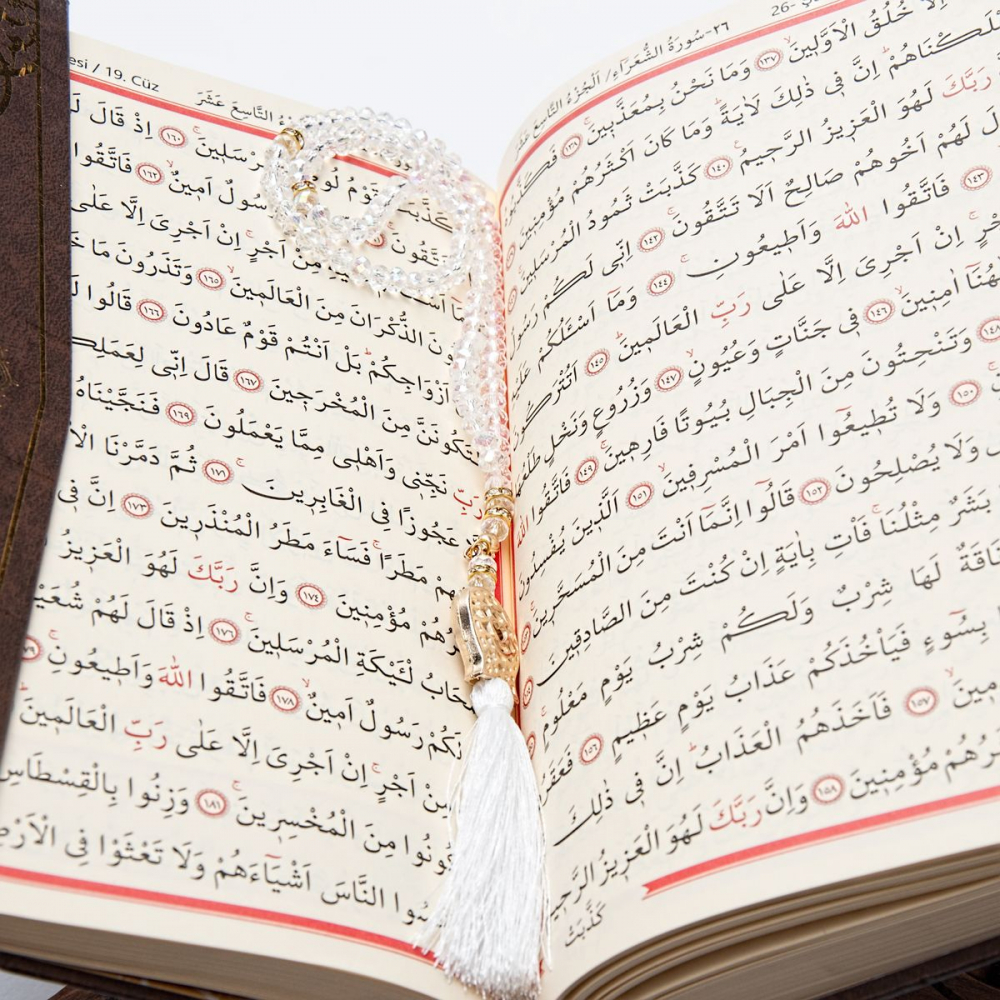 ٢٦-سُورَةُ الشُّعَرَاءِ/ اَلْجُزْءُ التَّاسِعَ عَشَرَ 26-
خُلُقُ الْاَوَّلٖينَ ١٣٧ وَمَا نَحْنُ بِمُعَذَّبٖينَ ١٣٨
اِنَّ فٖي ذٰلِكَ لَاٰيَةً وَمَا كَانَ اَكْثَرُهُمْ مُؤْمِنٖينَ
رَبَّكَ لَهُوَ الْعَزٖيزُ الرَّحٖيمُ ١٤٠ كَذَّبَتْ ثَمُودُ الْمُرْسَلٖينَ
لَهُمْ اَخُوهُمْ صَالِحٌ اَلَا تَتَّقُونَ ١٤٢ اِنّٖي لَكُمْ رَسُولٌ
١٤٣ فَاتَّقُوا اللّٰهَ وَاَطٖيعُونِ ١٤٤ وَمَا اَسْـَٔلُكُمْ
اِنْ اَجْرِيَ اِلَّا عَلٰى رَبِّ الْعَالَمٖينَ ١٤٥ اَتُتْرَكُونَ
هُنَا اٰمِنٖينَ ١٤٦ فٖي جَنَّاتٍ وَعُيُونٍ ١٤٧ وَزُرُوعٍ وَنَخْلٍ طَلْعُهَا
١٤٨ وَتَنْحِتُونَ مِنَ الْجِبَالِ بُيُوتًا فَارِهٖينَ ١٤٩ فَاتَّقُوا اللّٰهَ
١٥٠ وَلَا تُطٖيعُوا اَمْرَ الْمُسْرِفٖينَ ١٥١ اَلَّذٖينَ يُفْسِدُونَ
وَلَا يُصْلِحُونَ ١٥٢ قَالُوا اِنَّمَا اَنْتَ مِنَ الْمُسَحَّرٖينَ
بَشَرٌ مِثْلُنَا فَأْتِ بِاٰيَةٍ اِنْ كُنْتَ مِنَ الصَّادِقٖينَ
نَاقَةٌ لَهَا شِرْبٌ وَلَكُمْ شِرْبُ يَوْمٍ مَعْلُومٍ
بِسُوءٍ فَيَأْخُذَكُمْ عَذَابُ يَوْمٍ عَظٖيمٍ ١٥٦
١٥٧ فَاَخَذَهُمُ الْعَذَابُ اِنَّ فٖي ذٰلِكَ
مُؤْمِنٖينَ ١٥٨ وَاِنَّ رَبَّكَ لَهُوَ الْعَزٖيزُ الرَّحٖيمُ
كَذَّبَتْ
esi / 19. Cüz التَّاسِعَ عَشَرَ
١٦٠ اِذْ قَالَ
قَوْمُ ١٦٢ فَاتَّقُوا
رَسُولٌ اَمٖينٌ
تَتَّقُونَ
مِنْ اَجْرٍ اِنْ اَجْرِيَ اِلَّا عَلٰى
الذُّكْرَانَ مِنَ الْعَالَمٖينَ ١٦٥ وَتَذَرُونَ مَا
اَزْوَاجِكُمْ بَلْ اَنْتُمْ قَوْمٌ عَادُونَ ١٦٦ قَالُوا
مِنَ الْمُخْرَجٖينَ ١٦٧ قَالَ اِنّٖي لِعَمَلِكُمْ
رَبِّ نَجِّنٖي وَاَهْلٖي مِمَّا يَعْمَلُونَ ١٦٩ فَنَجَّيْنَاهُ
عَجُوزًا فِي الْغَابِرٖينَ ١٧١ ثُمَّ دَمَّرْنَا
مَطَرًا فَسَاءَ مَطَرُ الْمُنْذَرٖينَ ١٧٣ اِنَّ فٖي
مُؤْمِنٖينَ ١٧٤ وَاِنَّ رَبَّكَ لَهُوَ الْعَزٖيزُ
لْـَٔيْكَةِ الْمُرْسَلٖينَ ١٧٦ اِذْ قَالَ لَهُمْ
رَسُولٌ اَمٖينٌ ١٧٨ فَاتَّقُوا اللّٰهَ وَاَطٖيعُونِ
مِنْ اَجْرٍ اِنْ اَجْرِيَ اِلَّا عَلٰى رَبِّ الْعَالَمٖينَ
مِنَ الْمُخْسِرٖينَ ١٨١ وَزِنُوا بِالْقِسْطَاسِ
النَّاسَ اَشْيَاءَهُمْ وَلَا تَعْثَوْا فِي الْاَرْضِ